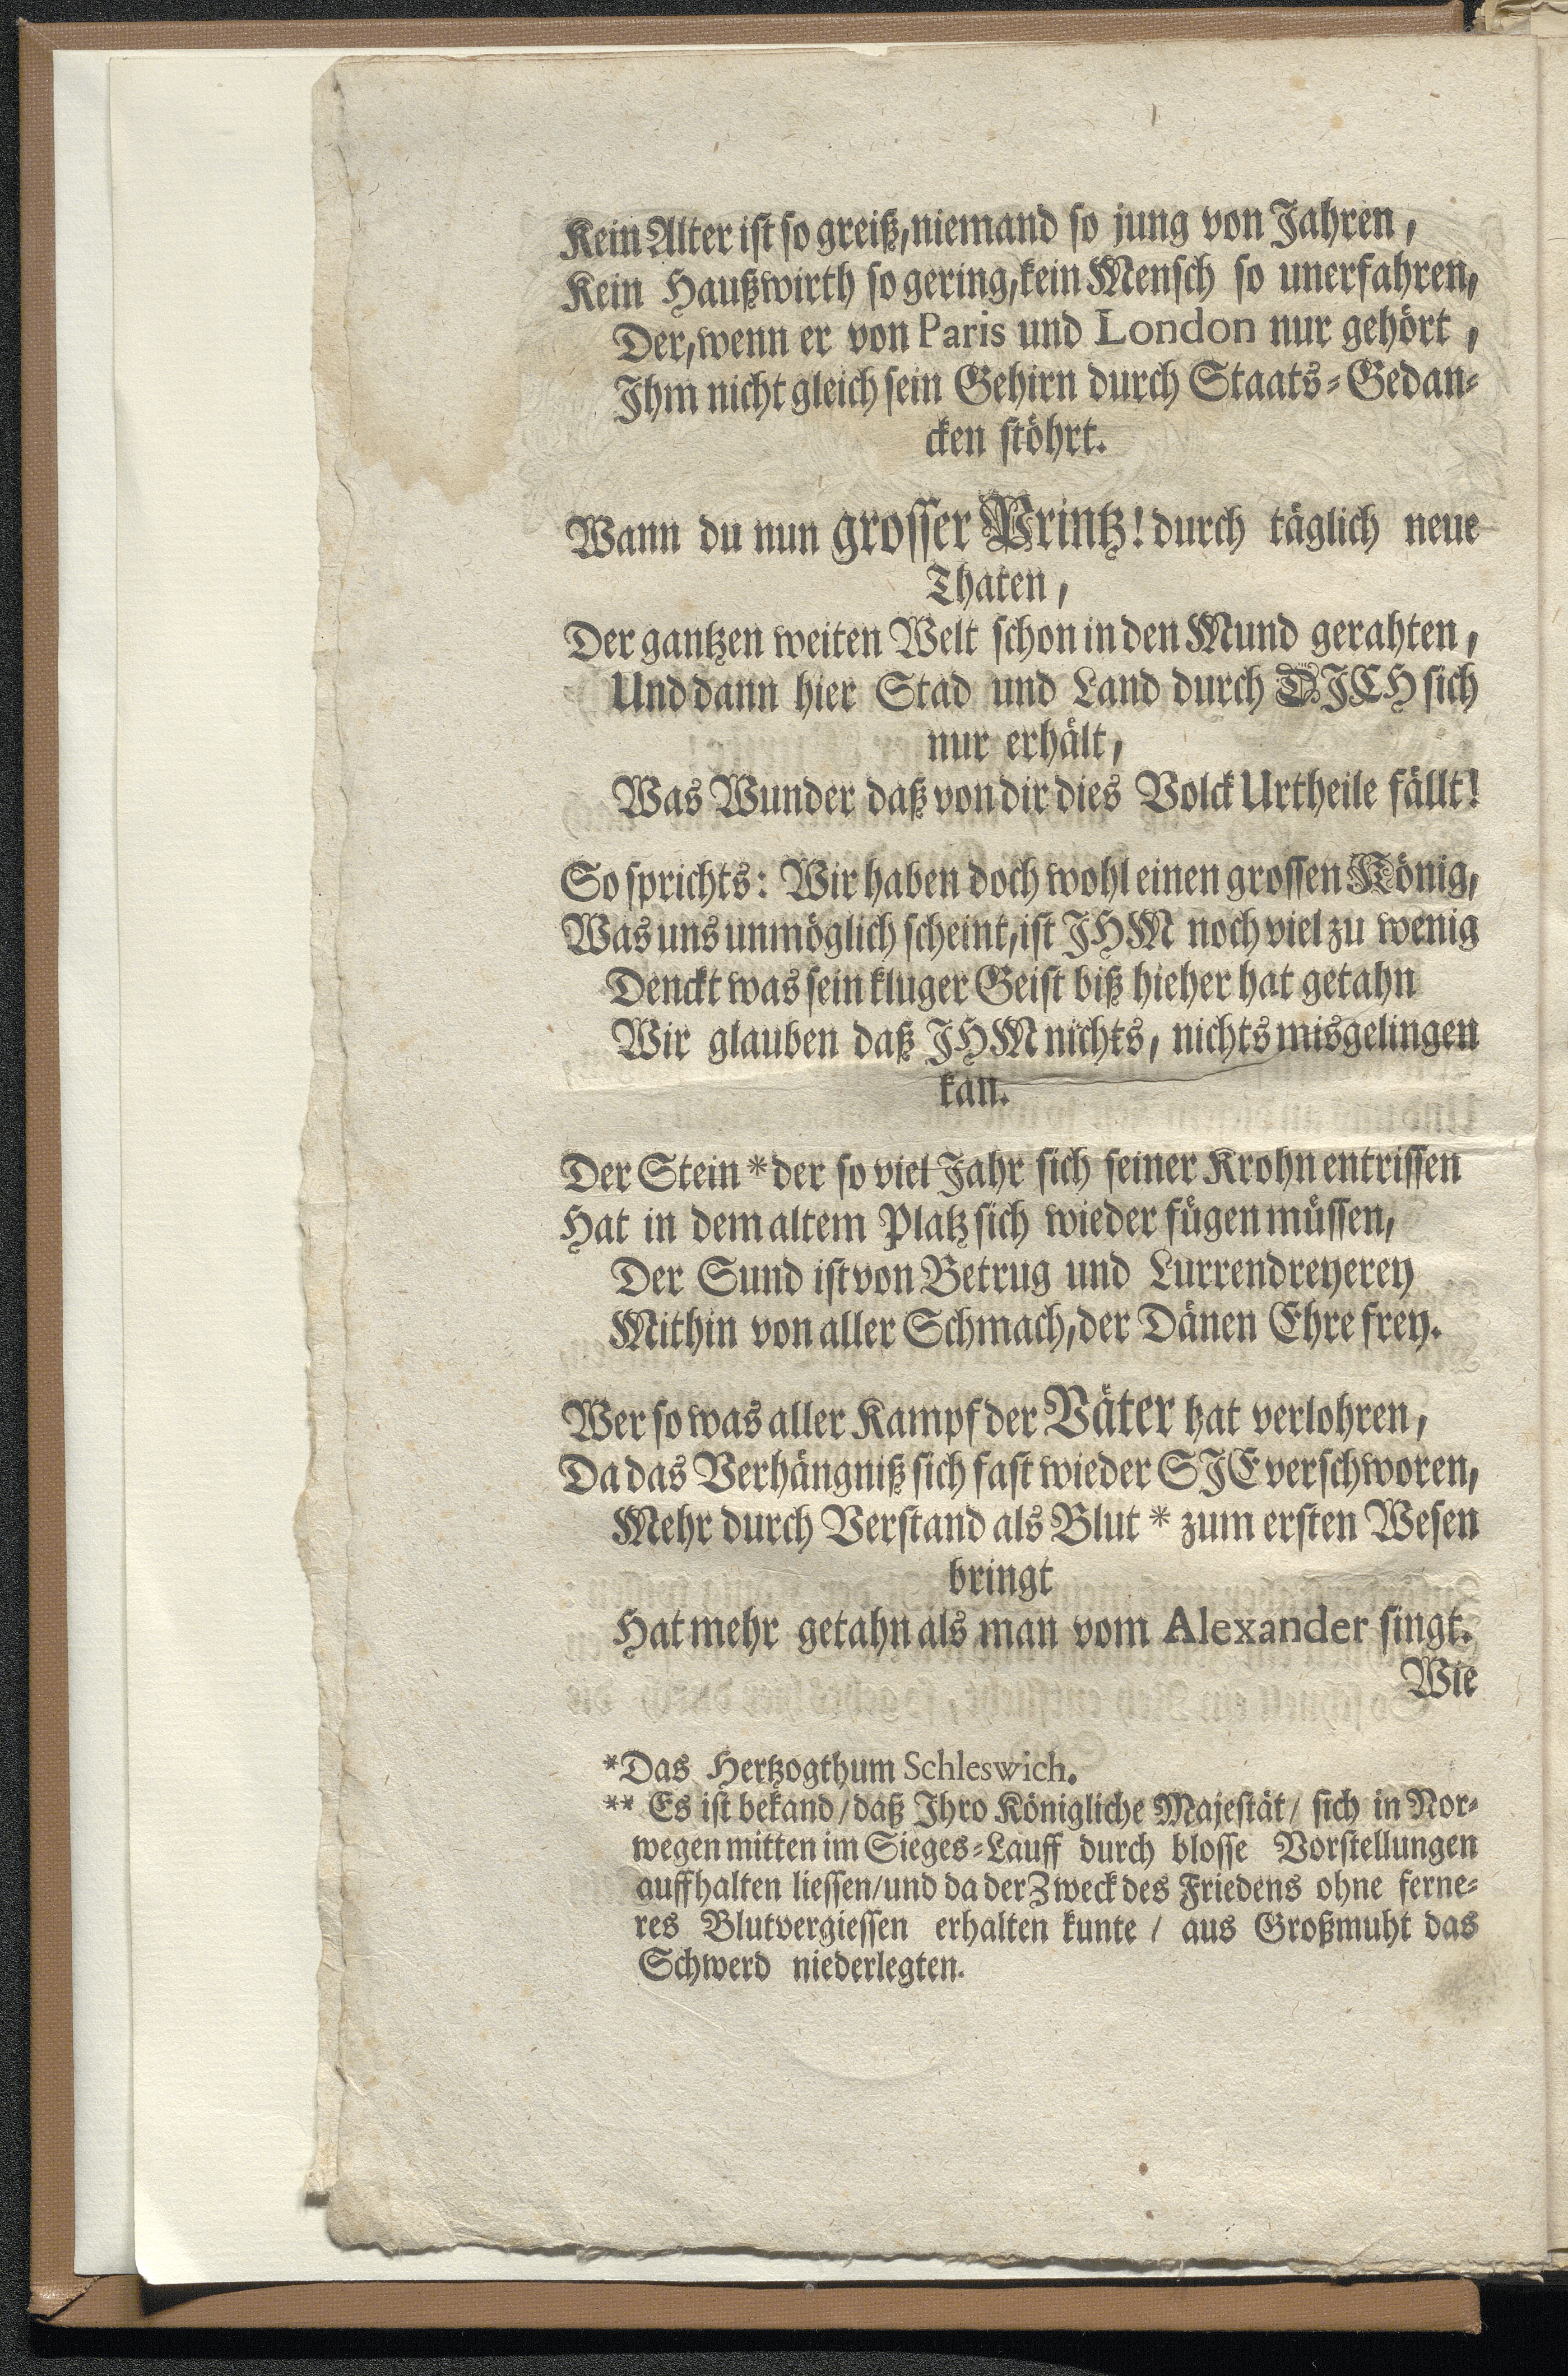 Kein Alter ist so greiß, niemand so jung von Jahren,
Kein Haußwirth so gering, kein Mensch so unerfahren,
Der, wenn er von Paris und London nur gehört,
Ihm nicht gleich sein Gehirn durch Staats-Gedan-
cken stöhrt.
Wann du nun grosser Printz! durch täglich neue
Thaten,
Der gantzen weiten Welt schon in den Mund gerahten,
Und dann hier Stad und Land durch DICH sich
nur erhält,
Was Wunder daß von dir dies Volck Urtheile fällt!
So sprichts: Wir haben doch wohl einen grossen König,
Was uns unmöglich scheint, ist IHM noch viel zu wenig
Denckt was sein kluger Geist biß hieher hat getahn
Wir glauben daß IHM nichts, nichts misgelingen
kan.
Der Stein * der so viel Jahr sich seiner Krohn entrissen
Hat in dem altem Platz sich wieder fügen müssen,
Der Sund ist von Betrug und Lurrendreyerey
Mithin von aller Schmach, der Dänen Ehre frey.
Wer so was aller Kampf der Väter hat verlohren,
Da das Verhängniß sich fast wieder SIE verschworen,
Mehr durch Verstand als Blut * zum ersten Wesen
bringt
Hat mehr getahn als man vom Alexander singt.
Wie
*Das Hertzogthum Schleswich.
** Es ist bekand / daß Ihro Königliche Majestät / sich in Nor-
wegen mitten im Sieges-Lauff durch blosse Vorstellungen
auffhalten liessen / und da der Zweck des Friedens ohne ferne-
res Blutvergiessen erhalten kunte / aus Großmuht das
Schwerd niederlegten.